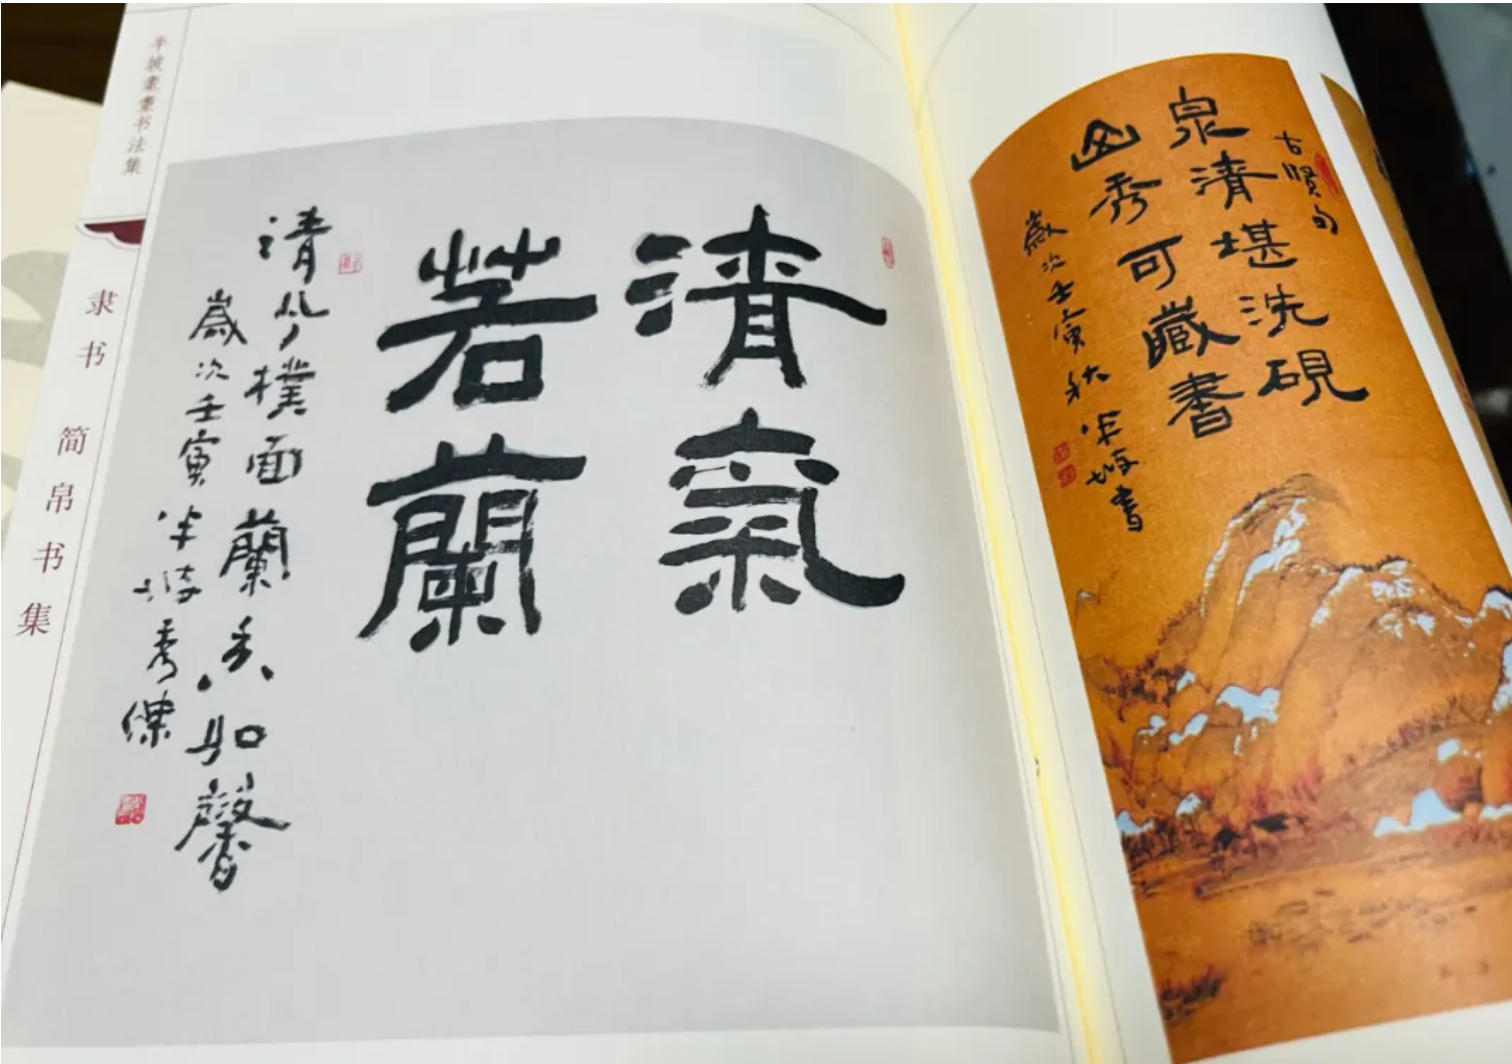 书法集
隶书 简帛书集
清氣
若蘭
清风撲面蘭香如馨
歲次壬寅半坡秀傑
古賢句
泉清堪洗硯
山秀可藏書
歲次壬寅秋半坡書